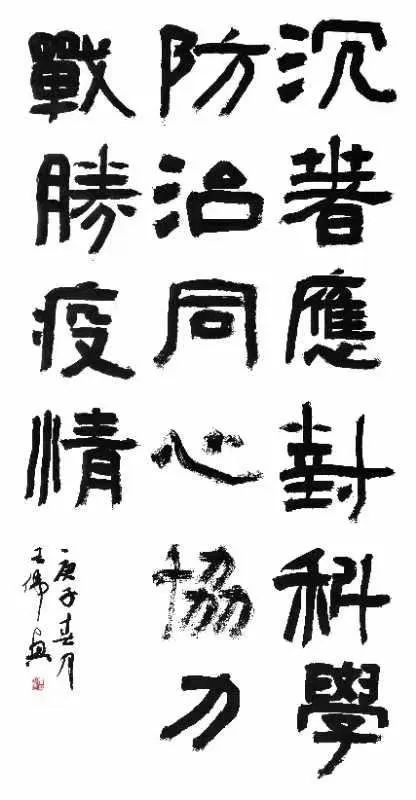 沉著應對科學
防治同心協力
戰勝疫情
庚子春月
王偉